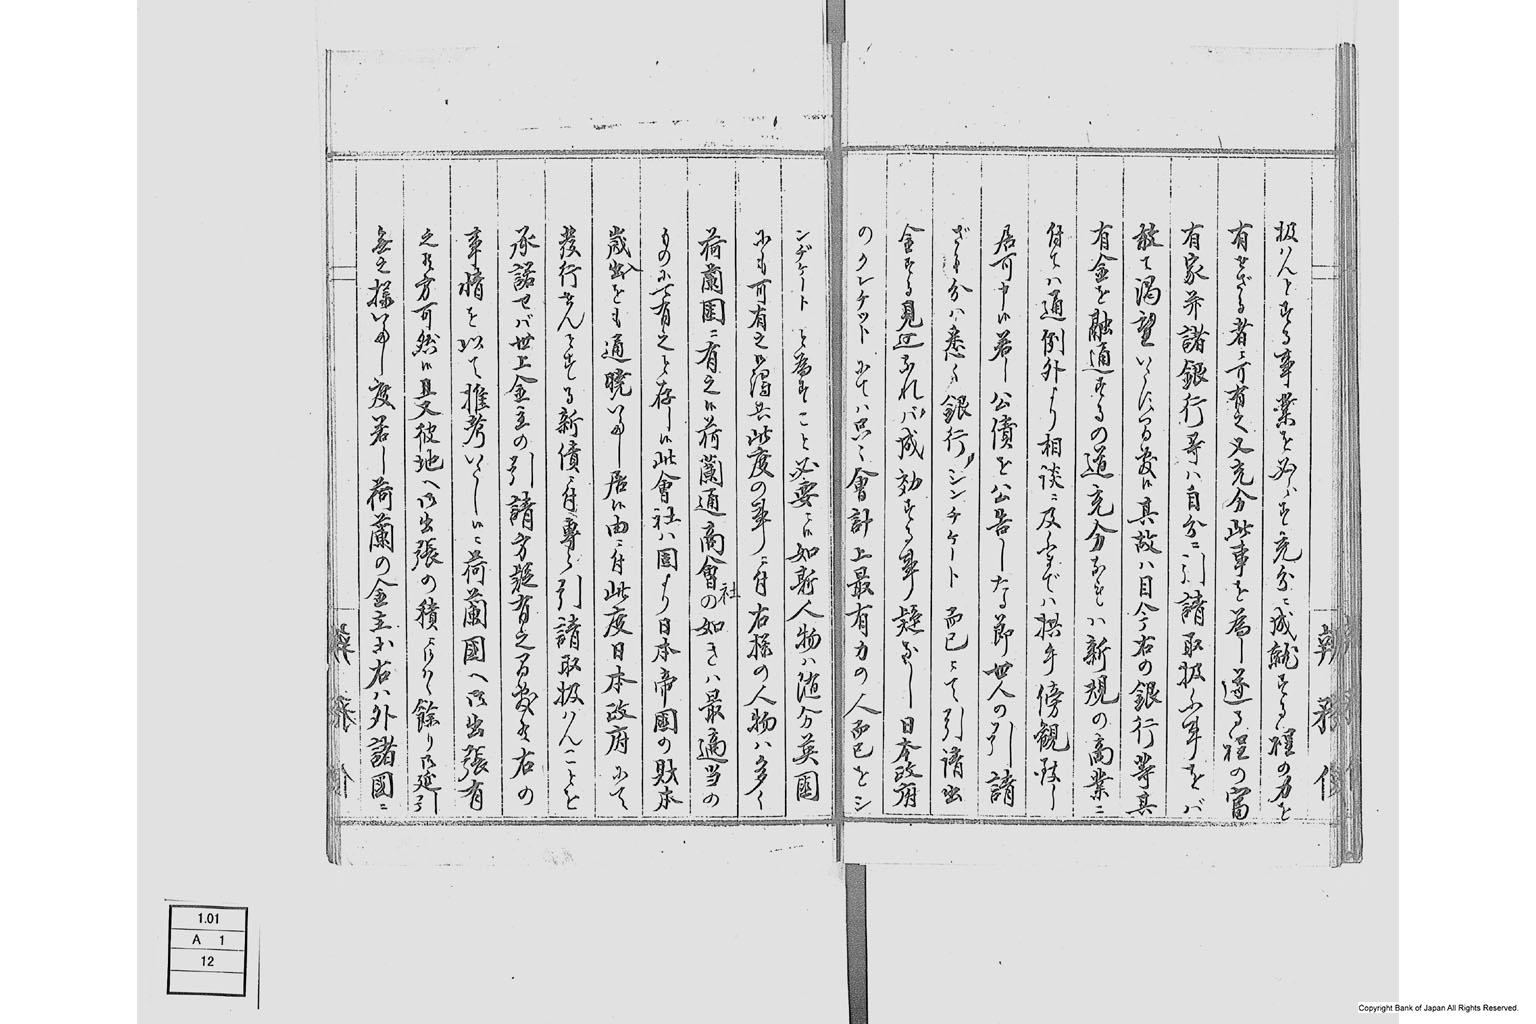 扱ハんとする事業を必らず充分ニ成就する程の力を
有せざる者ニ可有之又充分此事を為し遂る程の富
有家并諸銀行等ハ自分ニ引請取扱ふ事をバ
敢て渇望いたし間敷候其故ハ目今右の銀行等其
有金を融通するの道充分なれハ新規の商業ニ
付てハ通例外より相談ニ及ふまでハ拱手傍観致し
居可申候若し公債を公告したる節世人の引請
ざる分ハ悉く銀行シンヂケート而已にて引請出
金する見込なれバ成効する事疑なし日本政府
のクレヂットにてハ只に會計上最有力の人而已をシ
ンヂケートと為すこと必要ニ候如斯人物ハ随分英國
にも可有之候得共此度の事ニ付右様の人物ハ多く
荷蘭国ニ有之候荷蘭通商會社の如きハ最適当の
ものニ可有之と存し候此會社ハ固より日本帝國の財本
歳出入をも通暁いたし居候由ニ付此度日本政府にて
發行せんとする新債ニ付専ら引請取扱ハんことを
承諾せバ世上金主の引請方疑有之間敷候右の
事情を以て推考いたし候ニ荷蘭國へ御出張有
之候方可然候且又彼地へ御出張の積ニ候ハヽ餘り御延引
無之様いたし度若し荷蘭の金主等右ハ外諸國ニ
1.01
A 1
12
Copyright Bank of Japan All Rights Reserved.